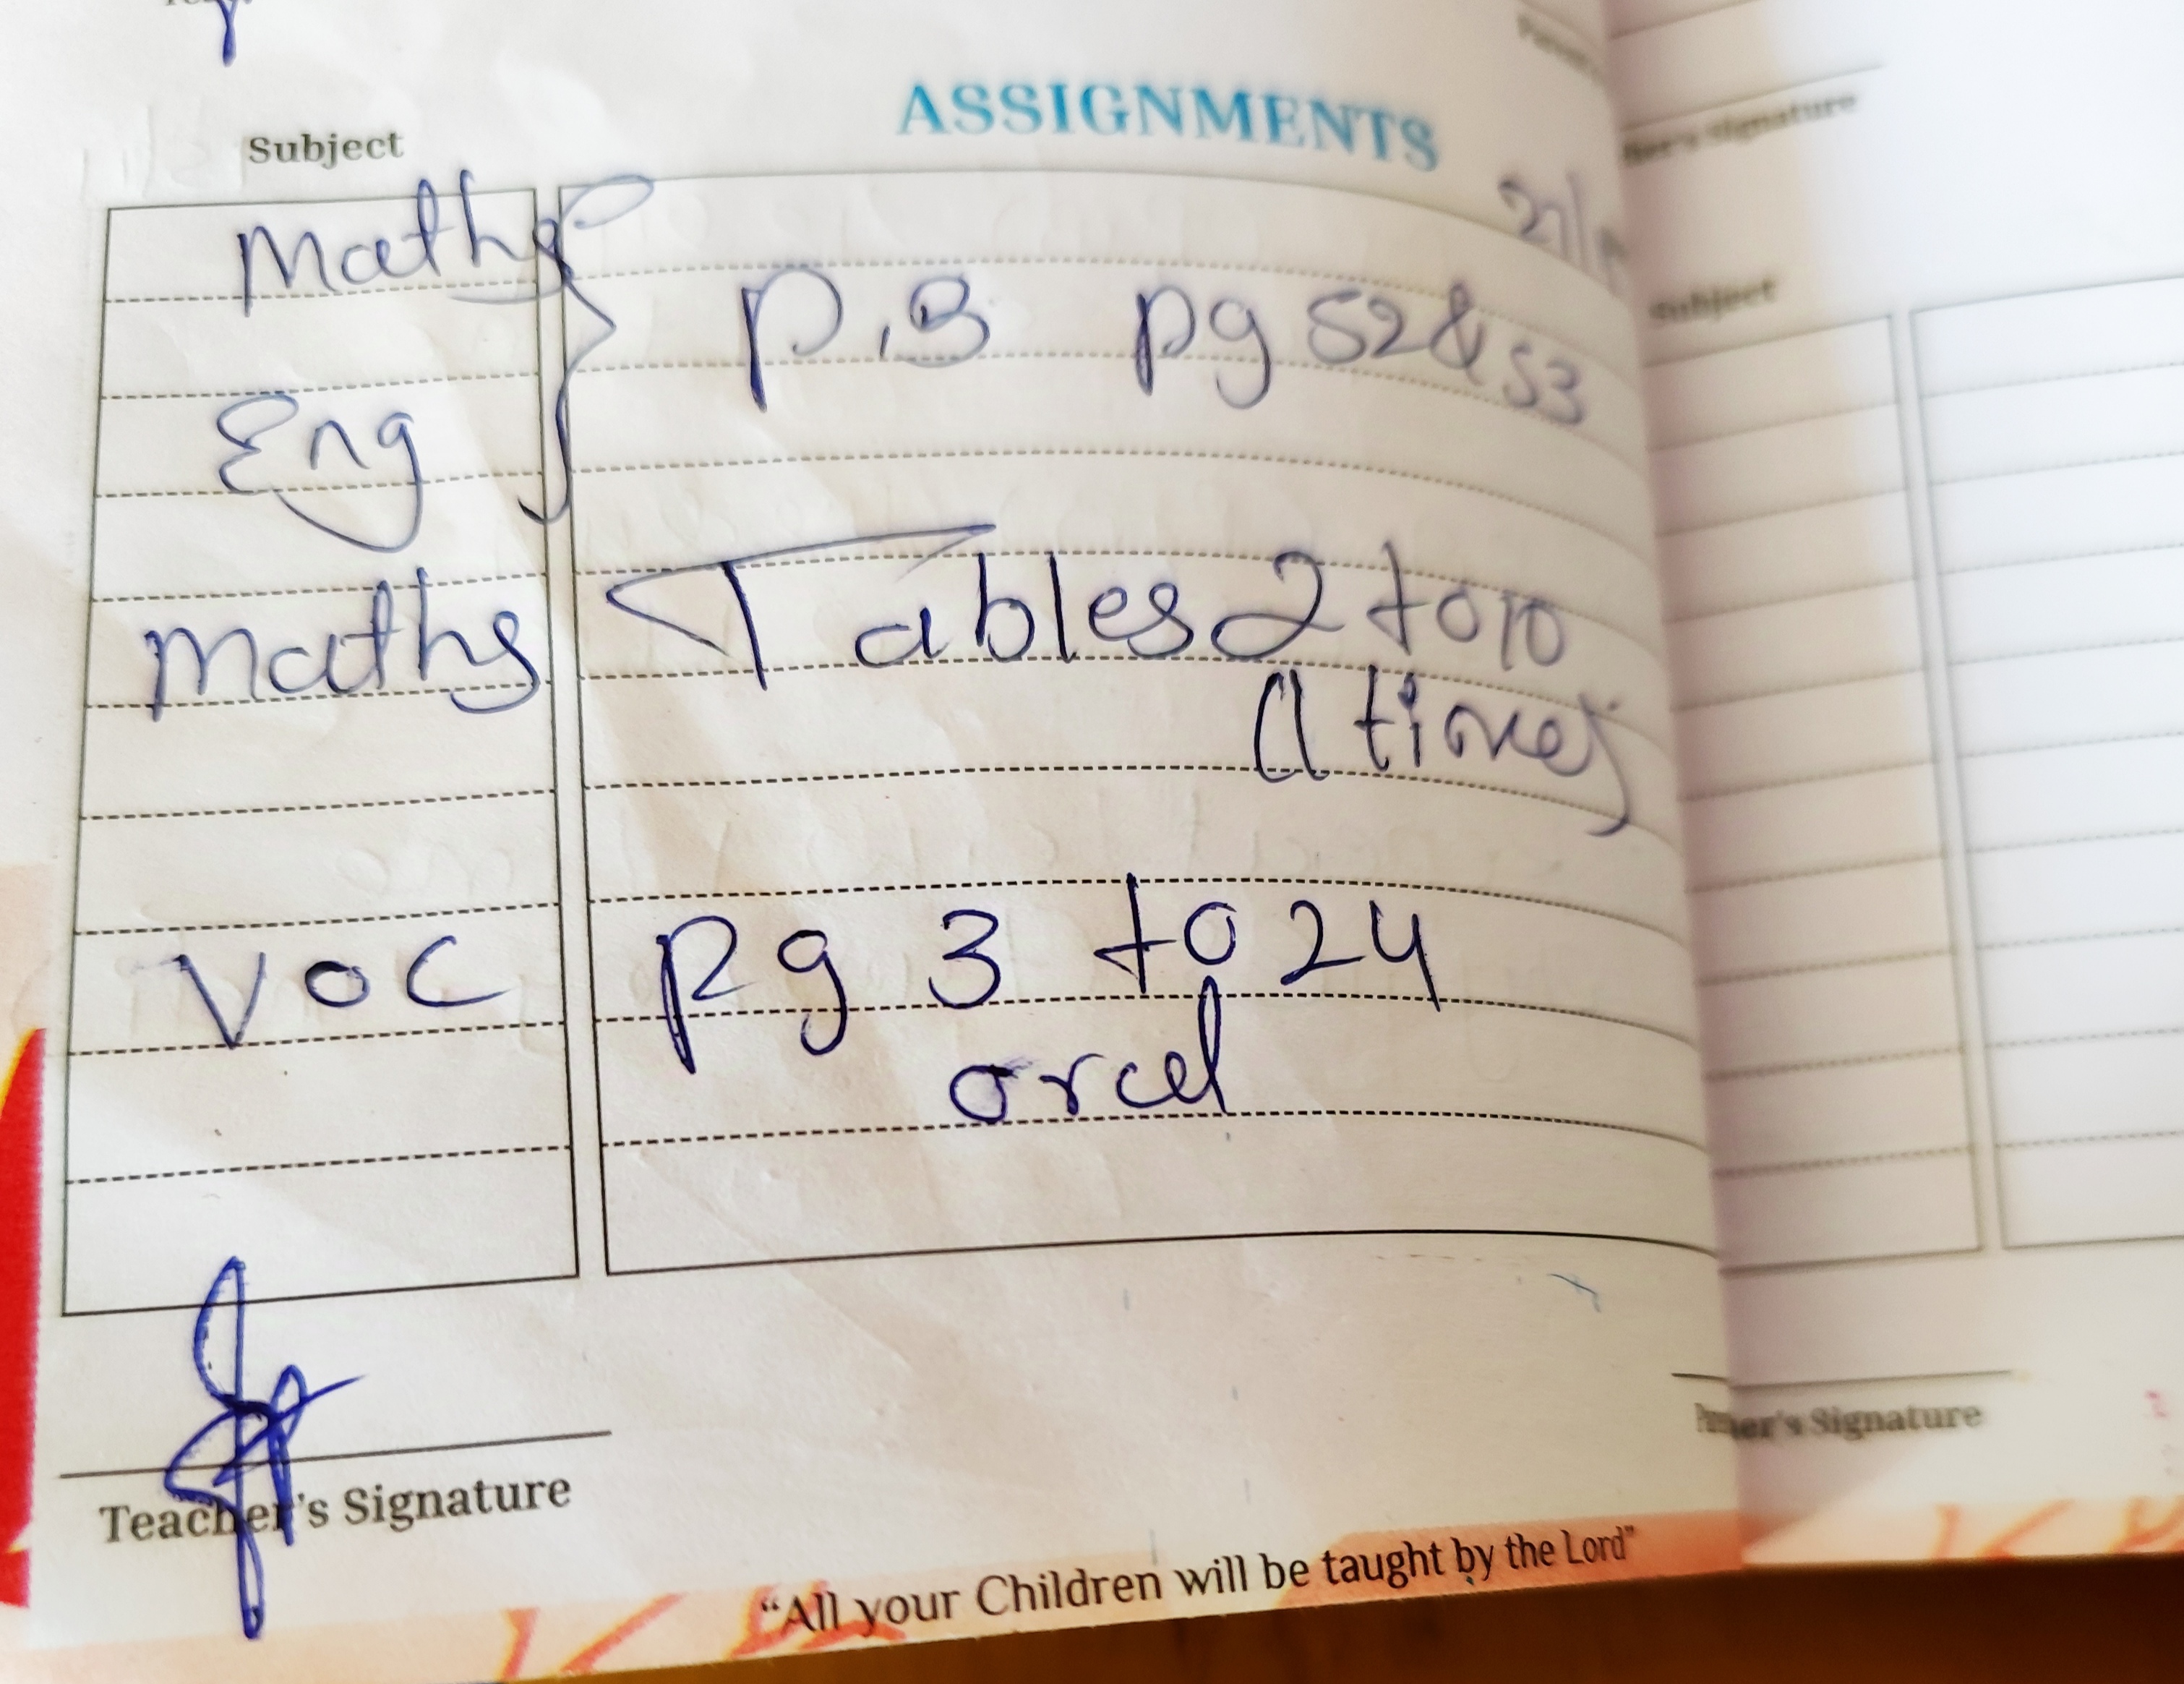 ASSIGNMENTS
Subject
Maths
P.B pg 52 & 53
Eng
Maths Tables 2 to 10
times
Voc pg 3 to 24
oral
Teacher's Signature
"All your Children will be taught by the Lord"
Signature
Subject
Signature